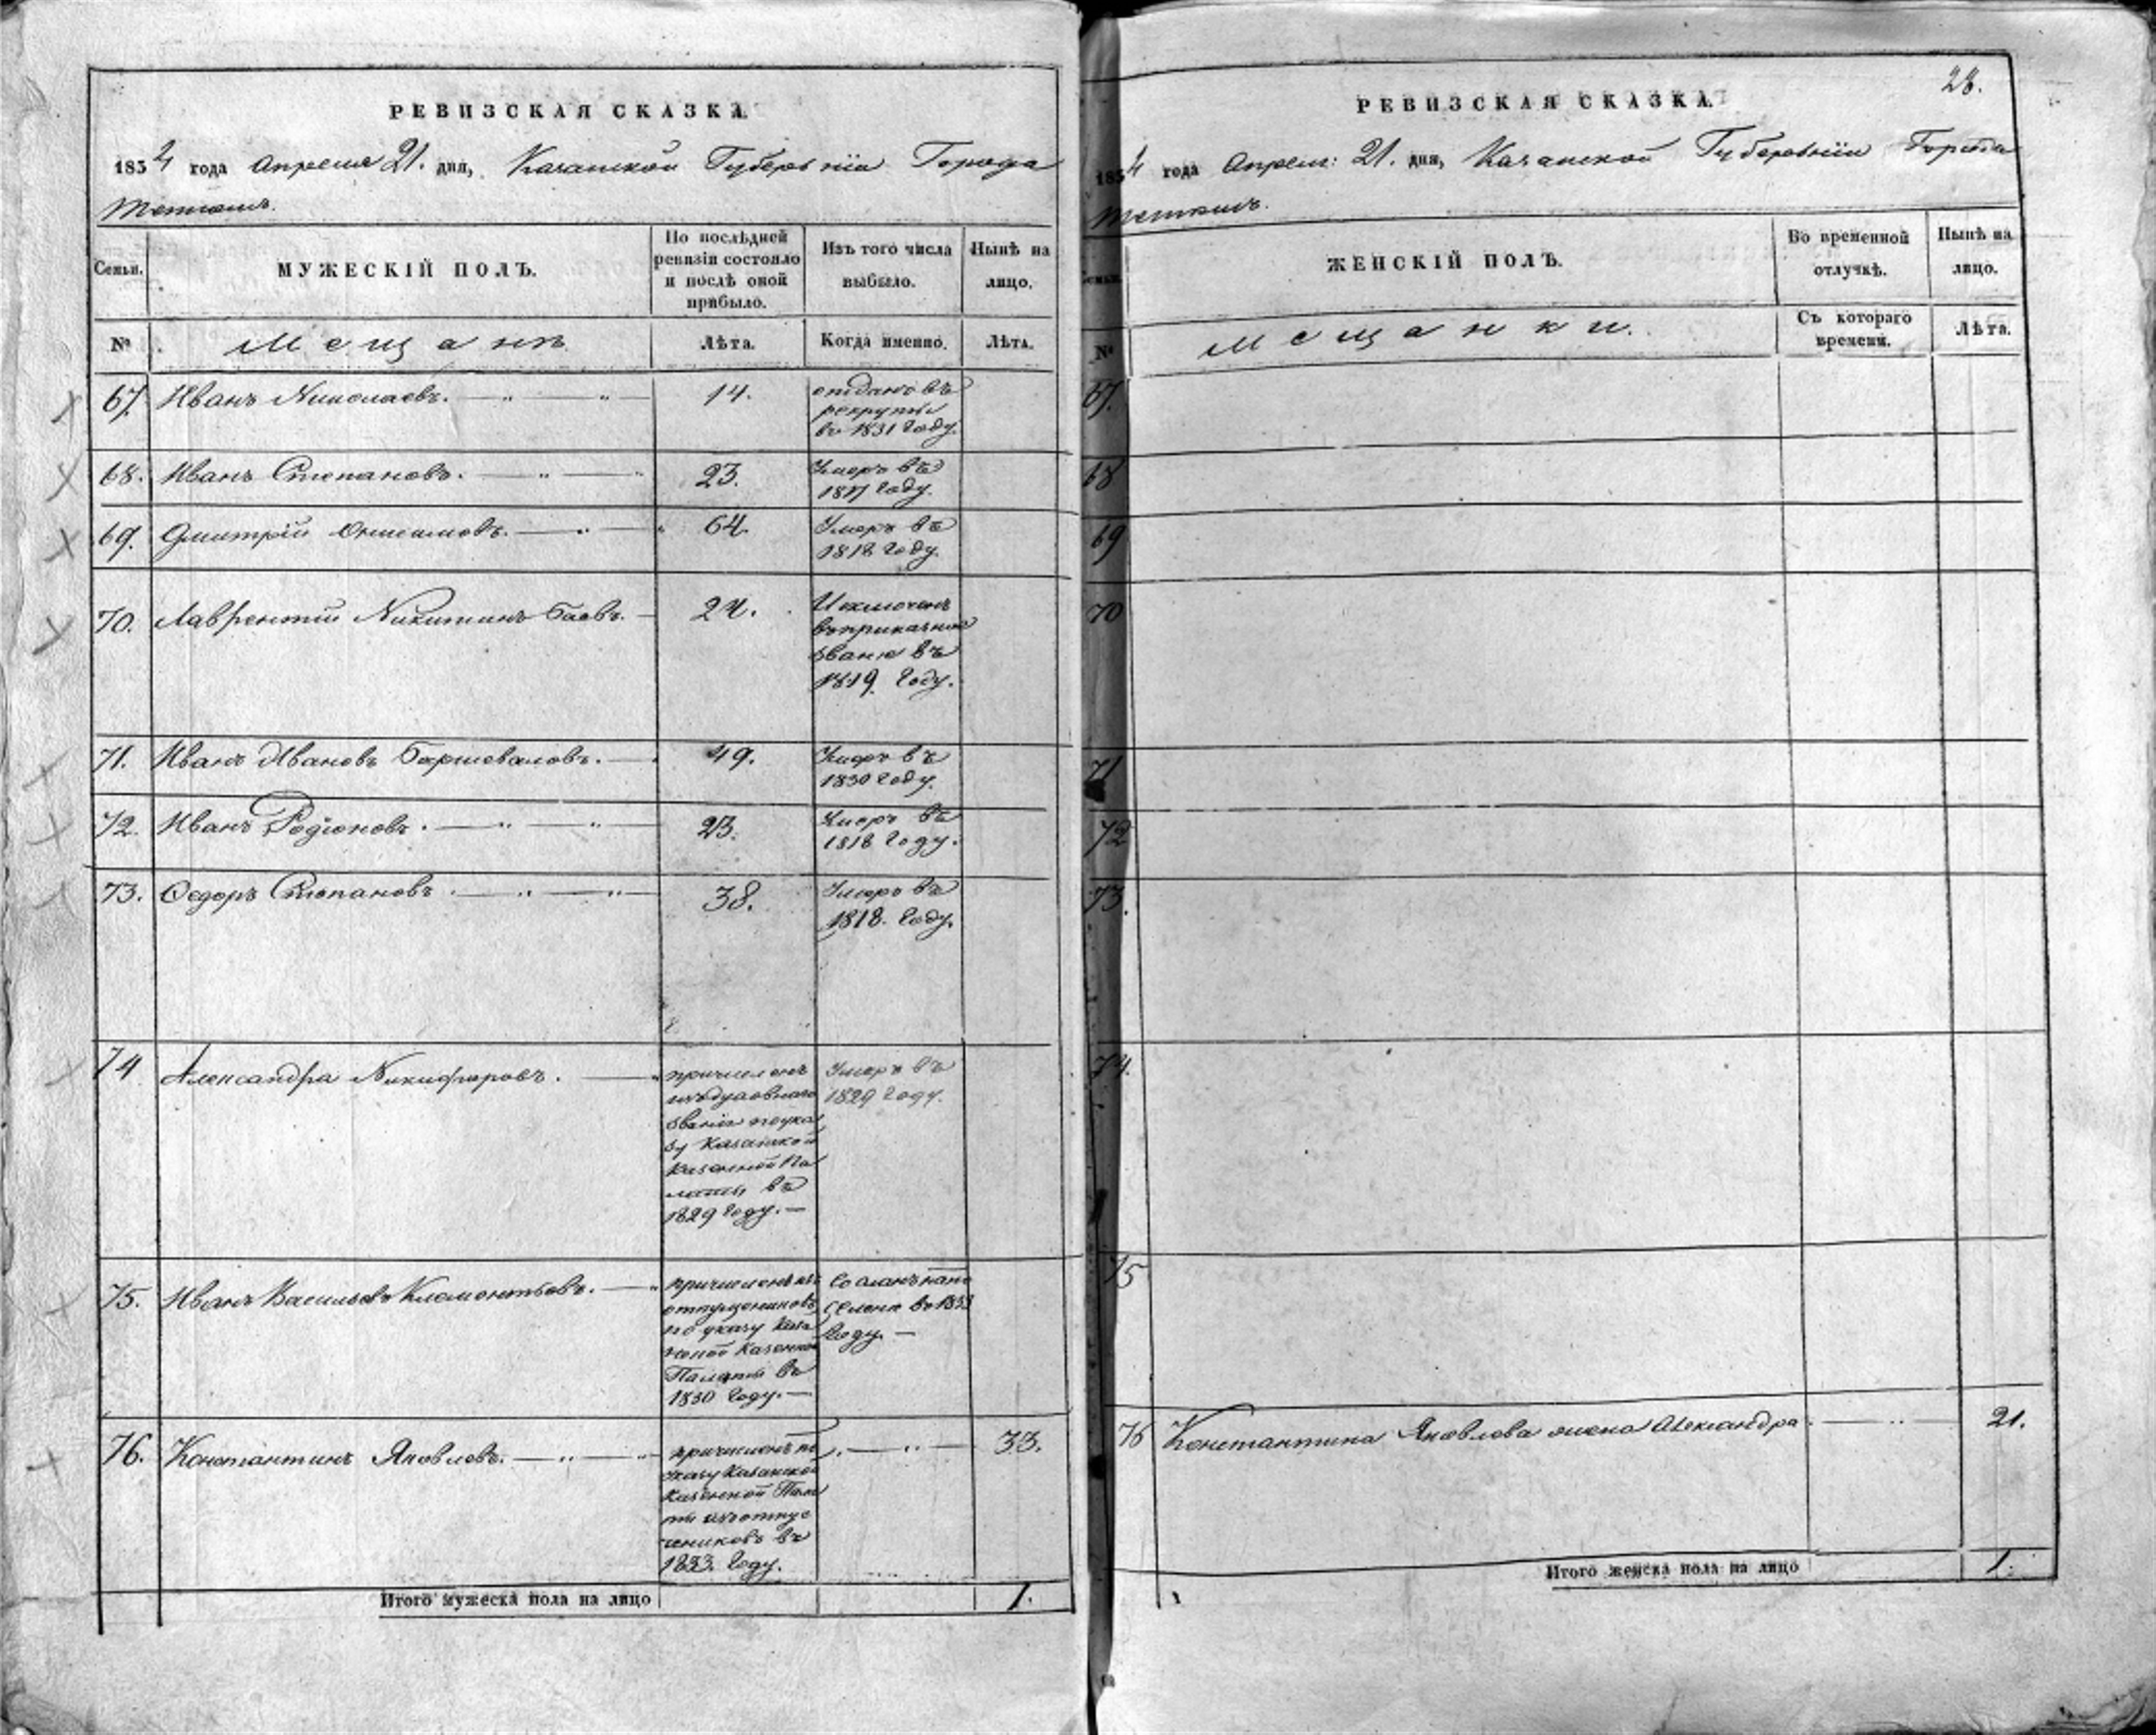 РЕВИЗСКАЯ СКАЗКА.
1834 года Апреля 21. дня, Казанской Губернiи Города
Тетюшъ.
Семьи.
МУЖЕСКIЙ ПОЛЪ.
По послѣдней
ревизiи состояло
и послѣ оной
прибыло.
Изъ того числа
выбыло.
Нынѣ на
лицо.
№
Мещанъ
Лѣта.
Когда именно.
Лѣта.
67. Иванъ Николаевъ.
14.
отданъ въ
рекруты
въ 1831 году.
68. Иванъ Степановъ.
23.
Умеръ въ
1817 году.
69. Дмитрiй Онисимовъ.
64.
Умеръ въ
1818 году.
70. Лаврентiй Никитинъ Баевъ.
24.
Изключенъ
въ приказное
званiе въ
1819. году.
71. Иванъ Ивановъ
49.
Умеръ въ
1830 году.
72. Иванъ Родiоновъ.
23.
Умеръ въ
1818 году.
73. Ѳедоръ Степановъ.
38.
Умеръ въ
1818. году.
74 Александра Никифоровъ.
причисленъ
изъ духовнаго
званiя по указу
Казанской
Казенной Па
латы въ
1829 году.
Умеръ въ
1829 году.
75. Иванъ Васильевъ Клементьевъ.
причисленъ изъ
отпущениковъ
по указу Каза
нской Казенной
Палаты въ
1830 году.
Сосланъ на по
селенiе въ 1833
году.
76. Константинъ Яковлевъ.
причисленъ по
указу Казанской
Казенной Пала
ты изъ отпу
щениковъ въ
1833. году.
33.
Итого мужеска пола на лицо
1.
28.
РЕВИЗСКАЯ СКАЗКА.
1834 года Апреля: 21. дня, Казанской Губернiи Города
Тетюшъ.
ЖЕНСКIЙ ПОЛЪ.
Во временной
отлучкѣ.
Нынѣ на
лицо.
№
Мещанки.
Съ котораго
времени.
Лѣта.
67.
68
69
70
71
72
73.
74.
75
76 Константина Яковлева жена Александра
21.
Итого женска пола на лицо
1.